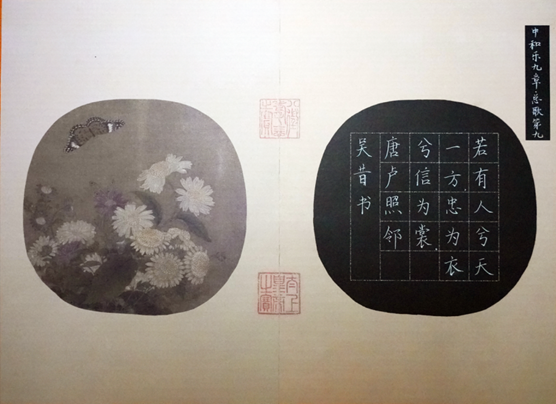 中和乐九章总歌第九
若有人兮天
一方,忠为衣
兮信为裳。
唐卢照邻
吴昔书